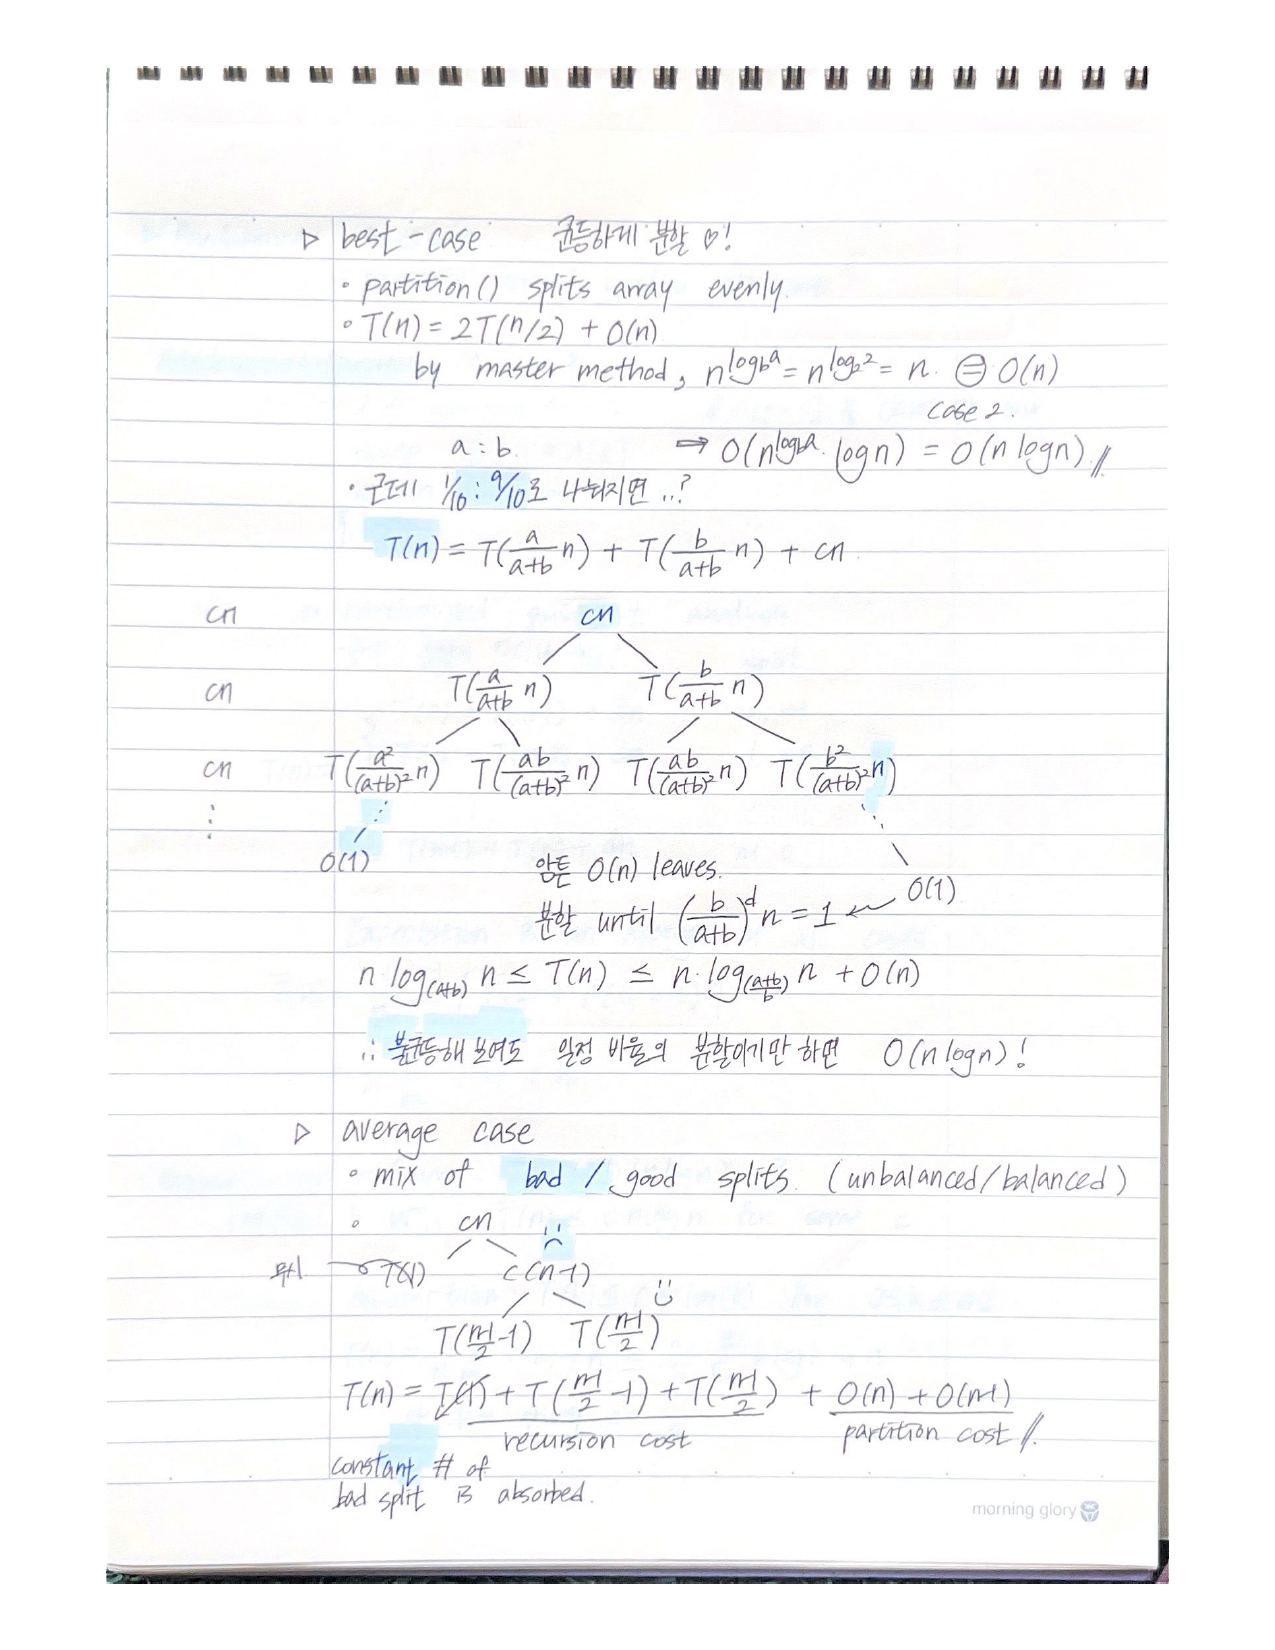 ▷ best-case 균등하게 분할 ♡!
• partition() splits array evenly.
• T(n) = 2T(n/2) + O(n)
by master method, n^log_b a = n^log_2 2 = n. ⊜ O(n)
case 2.
⇒ O(n^log_b a · logn) = O(n logn).//
a : b.
• 근데 1/10 : 9/10로 나눠지면 ..?
T(n) = T(a/(a+b) n) + T(b/(a+b) n) + cn
cn cn
cn T(a/(a+b) n) T(b/(a+b) n)
cn T(a²/(a+b)² n) T(ab/(a+b)² n) T(ab/(a+b)² n) T(b²/(a+b)² n)
⋮
O(1) 암튼 O(n) leaves. O(1)
분할 until (b/(a+b))^d n = 1 ←
n log_(a+b) n ≤ T(n) ≤ n·log_((a+b)/b) n + O(n)
∴ 불균등해 보여도 일정 비율의 분할이기만 하면 O(n logn)!
▷ average case
• mix of bad / good splits. (unbalanced/balanced)
• cn
무시 T(1) c(n-1)
T((n-1)/2 -1) T((n-1)/2)
T(n) = T(1) + T((n-1)/2 -1) + T((n-1)/2) + O(n) + O(n-1)
recursion cost partition cost //.
constant # of
bad split is absorbed.
morning glory